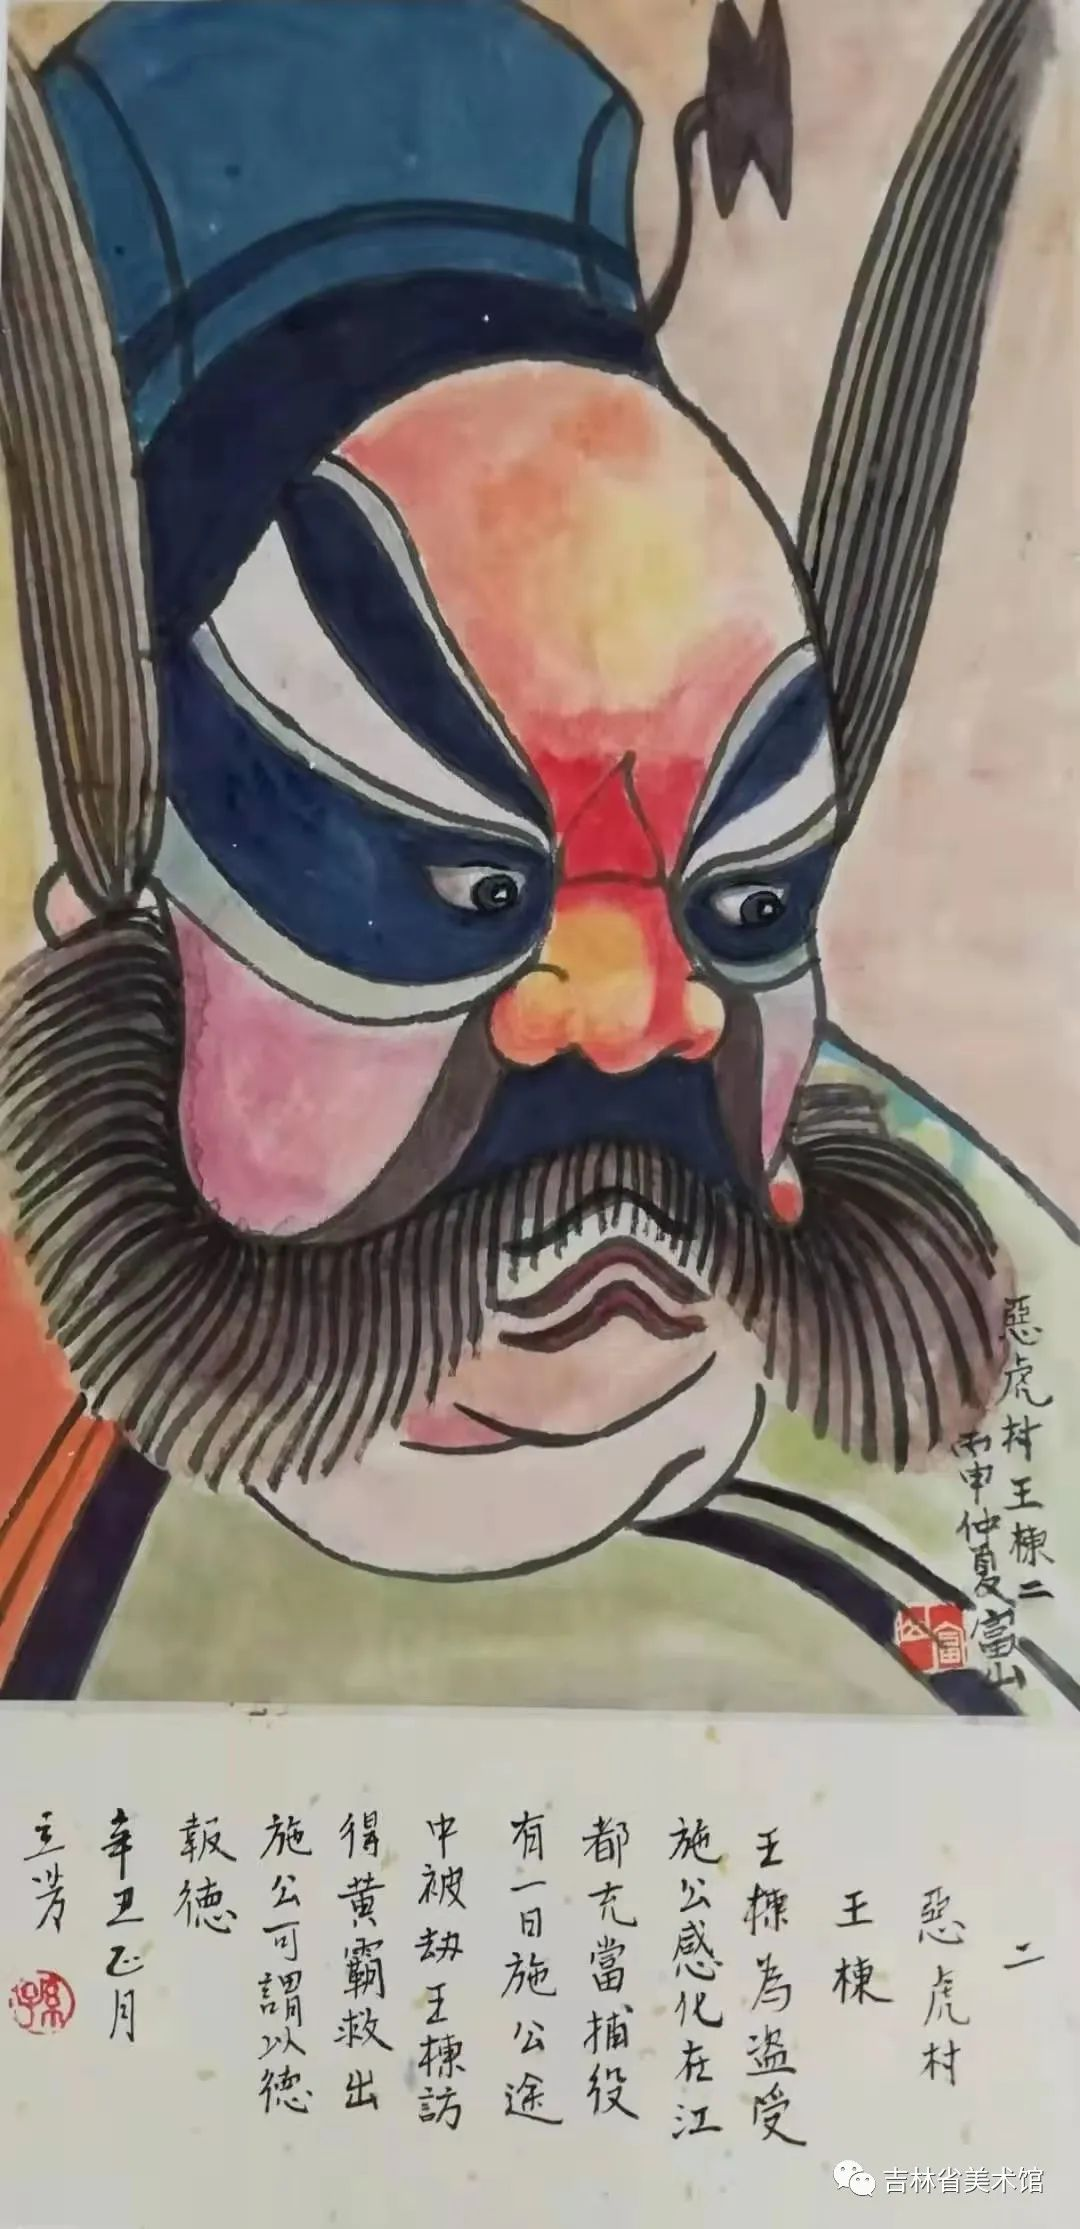 惡虎村王棟二
丙申仲夏富山
富山
二
惡虎村
王棟
王棟為盜受
施公感化在江
都充當捕役
有一日施公途
中被劫王棟訪
得黄霸救出
施公可謂以德
報德
辛丑正月
立芳
吉林省美术馆